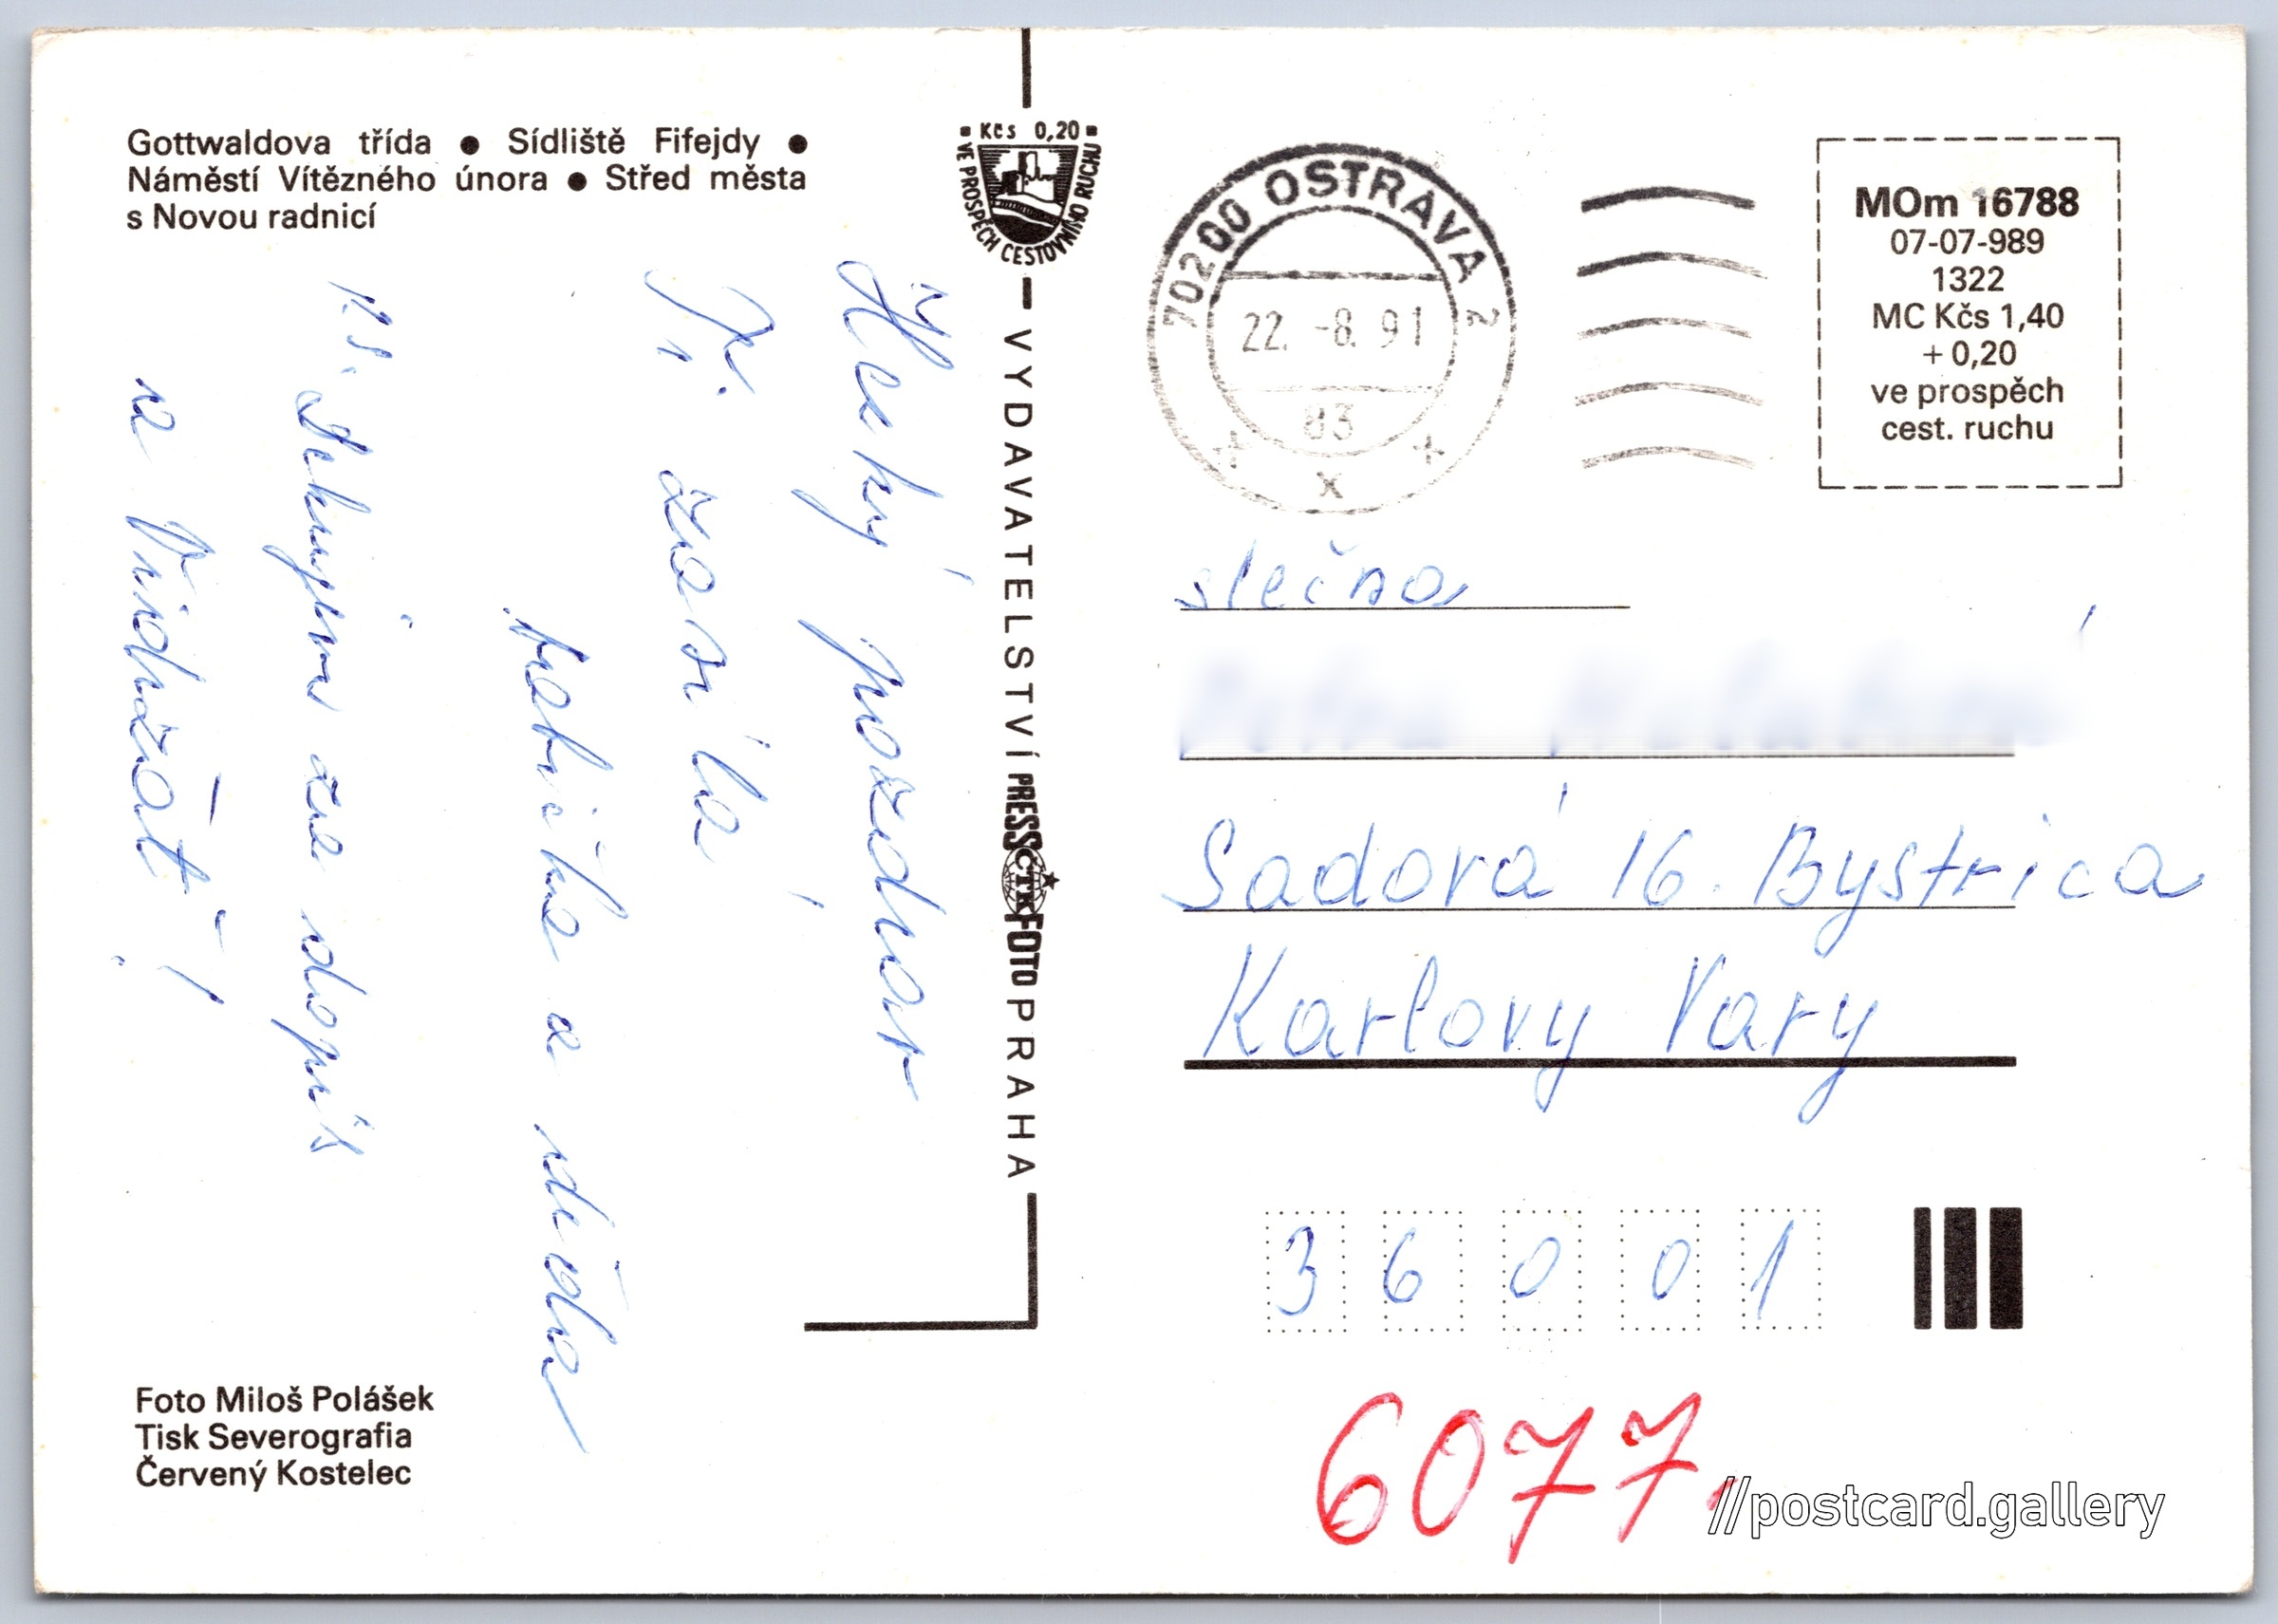 Gottwaldova třída ● Sídliště Fifejdy ●
Náměstí Vítězného února ● Střed města
s Novou radnicí
Hezký pozdrav
Ti zasílá
babička a děda
P.S. Děkujem za dopis
a Vidžáť!
Foto Miloš Polášek
Tisk Severografia
Červený Kostelec
Kčs 0,20
VE PROSPĚCH CESTOVNÍHO RUCHU
VYDAVATELSTVÍ PRESSFOTO PRAHA
ČTK
70200 OSTRAVA 2
22. -8. 91
83
x
MOm 16788
07-07-989
1322
MC Kčs 1,40
+ 0,20
ve prospěch
cest. ruchu
slečna
Sadová 16. Bystrica
Karlovy Vary
36001
6077
//postcard.gallery